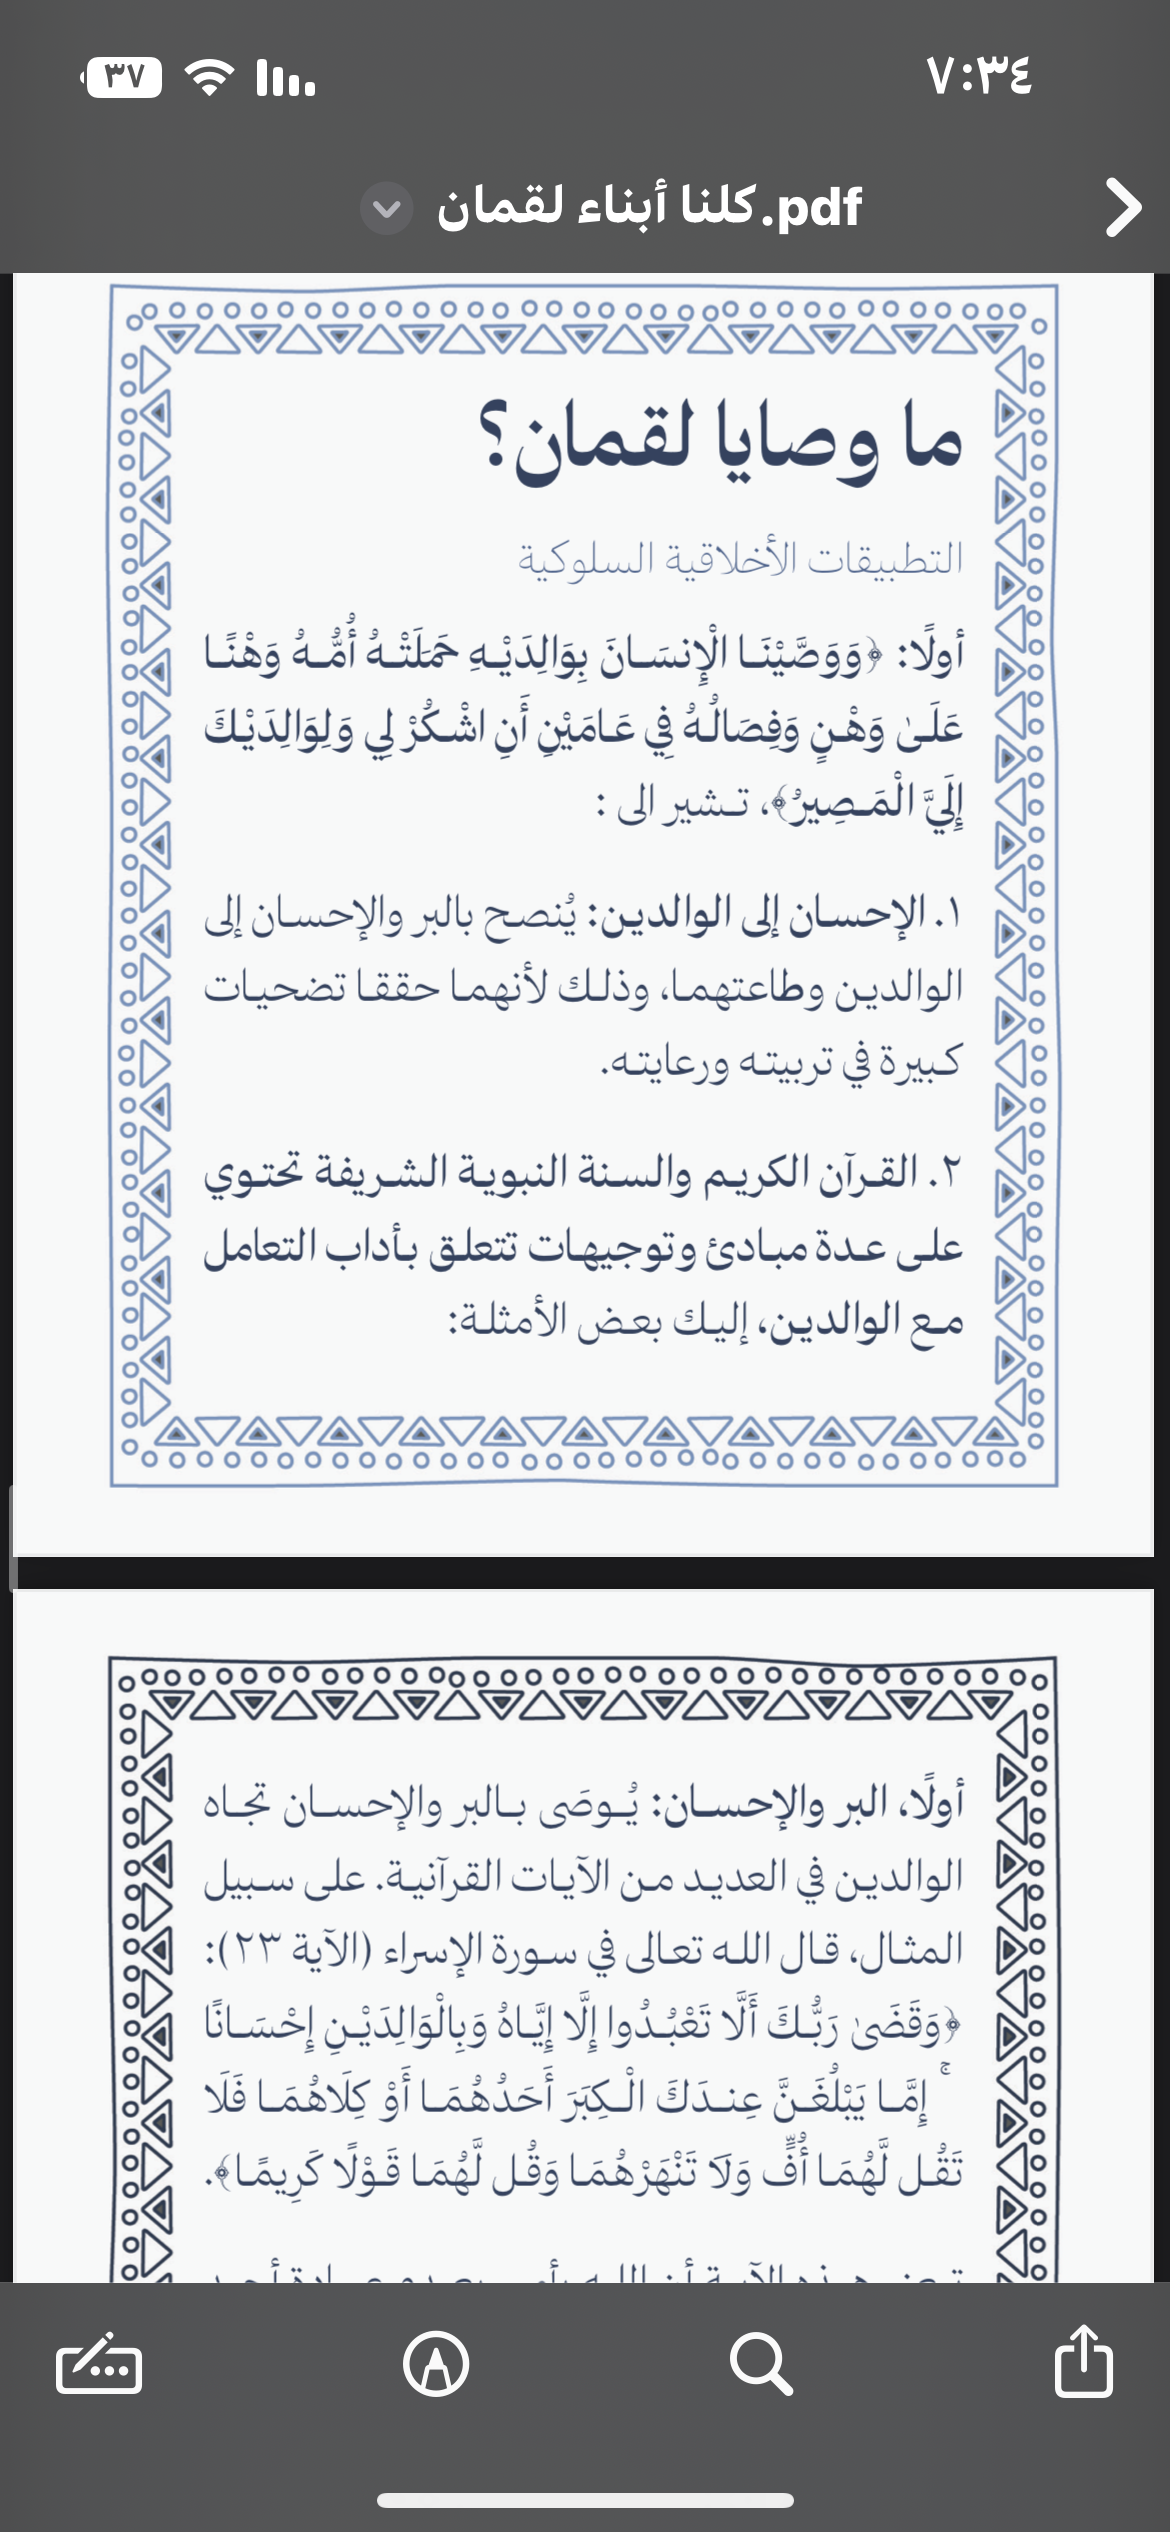 ٧:٣٤
٣٧
كلنا أبناء لقمان.pdf
ما وصايا لقمان؟
التطبيقات الأخلاقية السلوكية
أولًا: ﴿وَوَصَّيْنَا الْإِنسَانَ بِوَالِدَيْهِ حَمَلَتْهُ أُمُّهُ وَهْنًا
عَلَىٰ وَهْنٍ وَفِصَالُهُ فِي عَامَيْنِ أَنِ اشْكُرْ لِي وَلِوَالِدَيْكَ
إِلَيَّ الْمَصِيرُ﴾، تشير الى :
١. الإحسان إلى الوالدين: يُنصح بالبر والإحسان إلى
الوالدين وطاعتهما، وذلك لأنهما حققا تضحيات
كبيرة في تربيته ورعايته.
٢. القرآن الكريم والسنة النبوية الشريفة تحتوي
على عدة مبادئ وتوجيهات تتعلق بأداب التعامل
مع الوالدين، إليك بعض الأمثلة:
أولًا، البر والإحسان: يُوصَى بالبر والإحسان تجاه
الوالدين في العديد من الآيات القرآنية. على سبيل
المثال، قال الله تعالى في سورة الإسراء (الآية ٢٣):
﴿وَقَضَىٰ رَبُّكَ أَلَّا تَعْبُدُوا إِلَّا إِيَّاهُ وَبِالْوَالِدَيْنِ إِحْسَانًا
ۚ إِمَّا يَبْلُغَنَّ عِندَكَ الْكِبَرَ أَحَدُهُمَا أَوْ كِلَاهُمَا فَلَا
تَقُل لَّهُمَا أُفٍّ وَلَا تَنْهَرْهُمَا وَقُل لَّهُمَا قَوْلًا كَرِيمًا﴾.